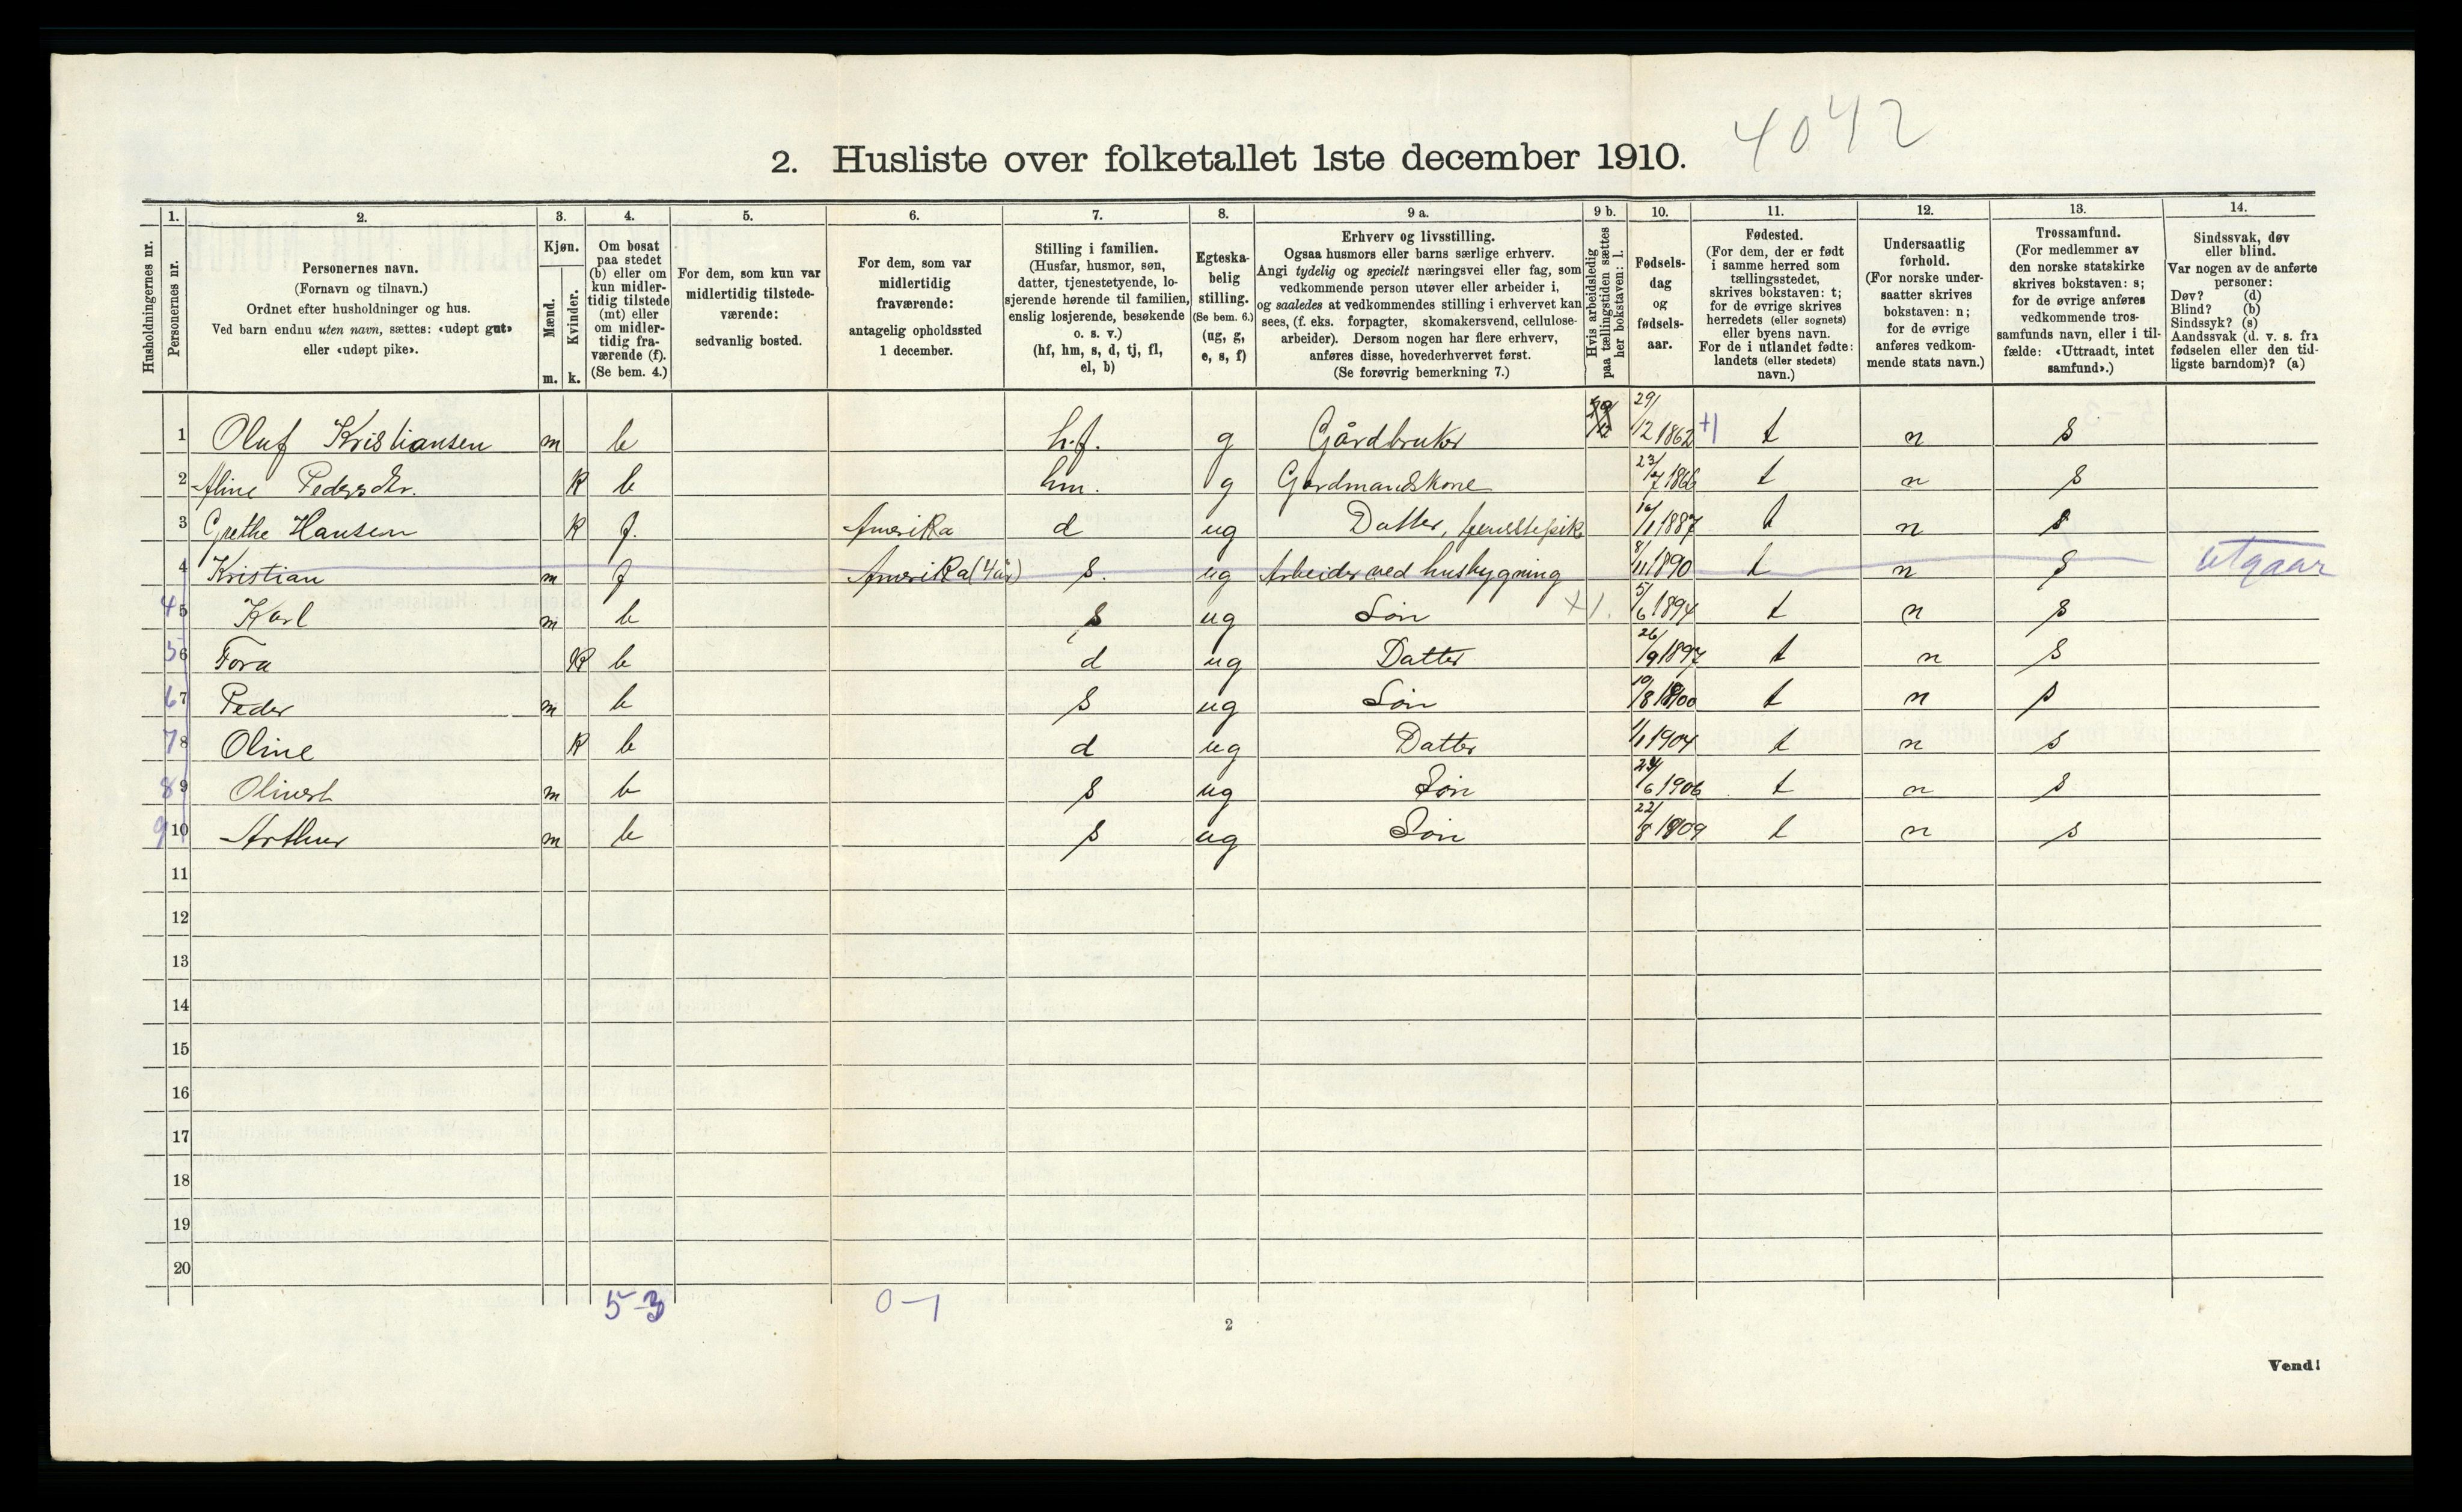 4042
2. Husliste over folketallet 1ste december 1910.
Husholdningernes nr.
1.
Personernes nr.
2.
Personernes navn.
(Fornavn og tilnavn.)
Ordnet efter husholdninger og hus.
Ved barn endnu uten navn, sættes: «udøpt gut»
eller «udøpt pike».
3.
Kjøn.
Mænd.
Kvinder.
m. k.
4.
Om bosat
paa stedet
(b) eller om
kun midler-
tidig tilstede
(mt) eller
om midler-
tidig fra-
værende (f).
(Se bem. 4.)
5.
For dem, som kun var
midlertidig tilstede-
værende:
sedvanlig bosted.
6.
For dem, som var
midlertidig
fraværende:
antagelig opholdssted
1 december.
7.
Stilling i familien.
(Husfar, husmor, søn,
datter, tjenestetyende, lo-
sjerende hørende til familien,
enslig losjerende, besøkende
o. s. v.)
(hf, hm, s, d, tj, fl,
el, b)
8.
Egteska-
belig
stilling.
(Se bem. 6.)
(ug, g,
e, s, f)
9 a.
Erhverv og livsstilling.
Ogsaa husmors eller barns særlige erhverv.
Angi tydelig og specielt næringsvei eller fag, som
vedkommende person utøver eller arbeider i,
og saaledes at vedkommendes stilling i erhvervet kan
sees, (f. eks. forpagter, skomakersvend, cellulose-
arbeider). Dersom nogen har flere erhverv,
anføres disse, hovederhvervet først.
(Se forøvrig bemerkning 7.)
9 b.
Hvis arbeidsledig
paa tællingstiden sættes
her bokstaven: l.
10.
Fødsels-
dag
og
fødsels-
aar.
11.
Fødested.
(For dem, der er født
i samme herred som
tællingsstedet,
skrives bokstaven: t;
for de øvrige skrives
herredets (eller sognets)
eller byens navn.
For de i utlandet fødte:
landets (eller stedets)
navn.)
12.
Undersaatlig
forhold.
(For norske under-
saatter skrives
bokstaven: n;
for de øvrige
anføres vedkom-
mende stats navn.)
13.
Trossamfund.
(For medlemmer av
den norske statskirke
skrives bokstaven: s;
for de øvrige anføres
vedkommende tros-
samfunds navn, eller i til-
fælde: «Uttraadt, intet
samfund».)
14.
Sindssvak, døv
eller blind.
Var nogen av de anførte
personer:
Døv? (d)
Blind? (b)
Sindssyk? (s)
Aandssvak (d. v. s. fra
fødselen eller den tid-
ligste barndom)? (a)
1 Oluf Kristiansen m b h.f. g Gårdbruker 29/12 1862 +1 t n s
2 Aline Pedersdtr. k b hm. g Gardmandskone 23/7 1866 t n s
3 Grethe Hansen k f. Amerika d ug Datter, 1887 t n s
4 Kristian m f Amerika (4 år) s. ug Arbeider ved husbygning 8/11 1890 t n s utgaar
4 5 Karl m b s ug Søn +1. 5/6 1894 t n s
5 6 Tora k b d ug Datter 26/9 1897 t n s
6 7 Peder m b s ug Søn 10/8 1900 t n s
7 8 Oline k b d ug Datter 1/1 1904 t n s
8 9 Olivert m b s ug Søn 24/6 1906 t n s
9 10 Arthur m b s ug Søn 22/8 1909 t n s
11
12
13
14
15
16
17
18
19
20
5-3 0-1
2
Vend!